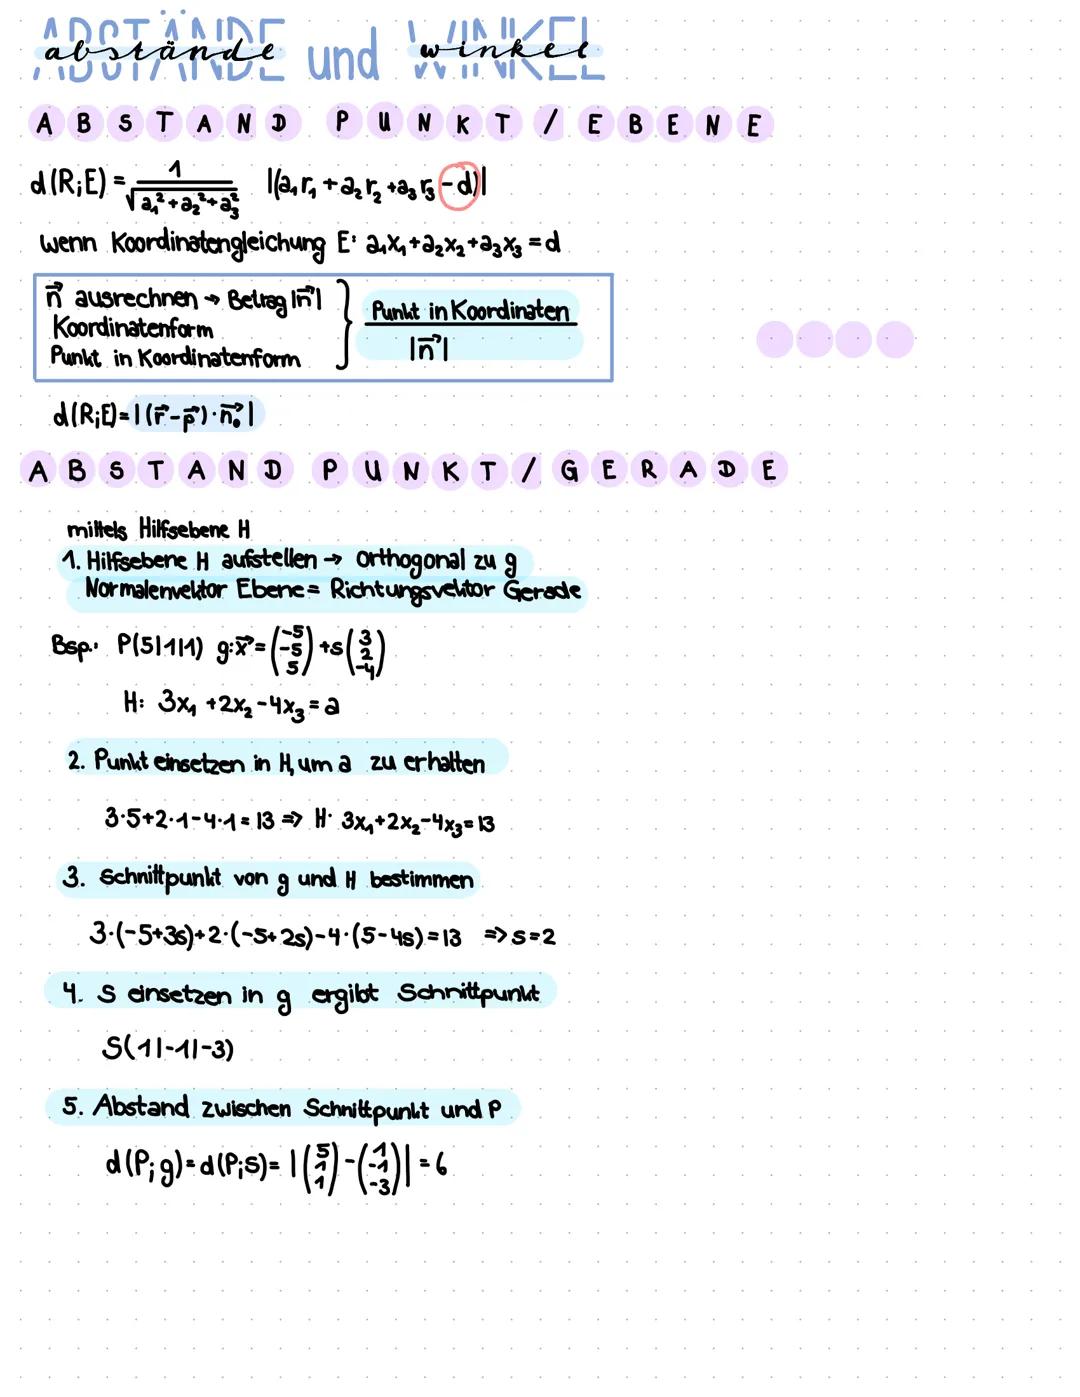 abstände und winkel
ABSTÄNDE WINKEL
ABSTAND PUNKT / EBENE
d(R;E) = 1/√(a₁²+a₂²+a₃²) |(a₁r₁ + a₂r₂ + a₃r₃ - d)|
wenn Koordinatengleichung E: a₁x₁+a₂x₂+a₃x₃ = d
n⃗ ausrechnen → Betrag |n⃗|
Koordinatenform
Punkt in Koordinatenform
Punkt in Koordinaten
|n⃗|
d(R;E) = |(r⃗-p⃗)·n⃗₀|
ABSTAND PUNKT / GERADE
mittels Hilfsebene H
1. Hilfsebene H aufstellen → orthogonal zu g
Normalenvektor Ebene = Richtungsvektor Gerade
Bsp.: P(5|1|1) g: x⃗ = (-5 -5 5) + s (3 2 -4)
H: 3x₁ + 2x₂ - 4x₃ = a
2. Punkt einsetzen in H, um a zu erhalten
3·5+2·1-4·1 = 13 ⇒ H: 3x₁+2x₂-4x₃ = 13
3. Schnittpunkt von g und H bestimmen
3·(-5+3s)+2·(-5+2s)-4·(5-4s) = 13 ⇒ s=2
4. s einsetzen in g ergibt Schnittpunkt
S(1|-1|-3)
5. Abstand zwischen Schnittpunkt und P
d(P;g) = d(P;S) = |(5 1 1) - (1 -1 -3)| = 6